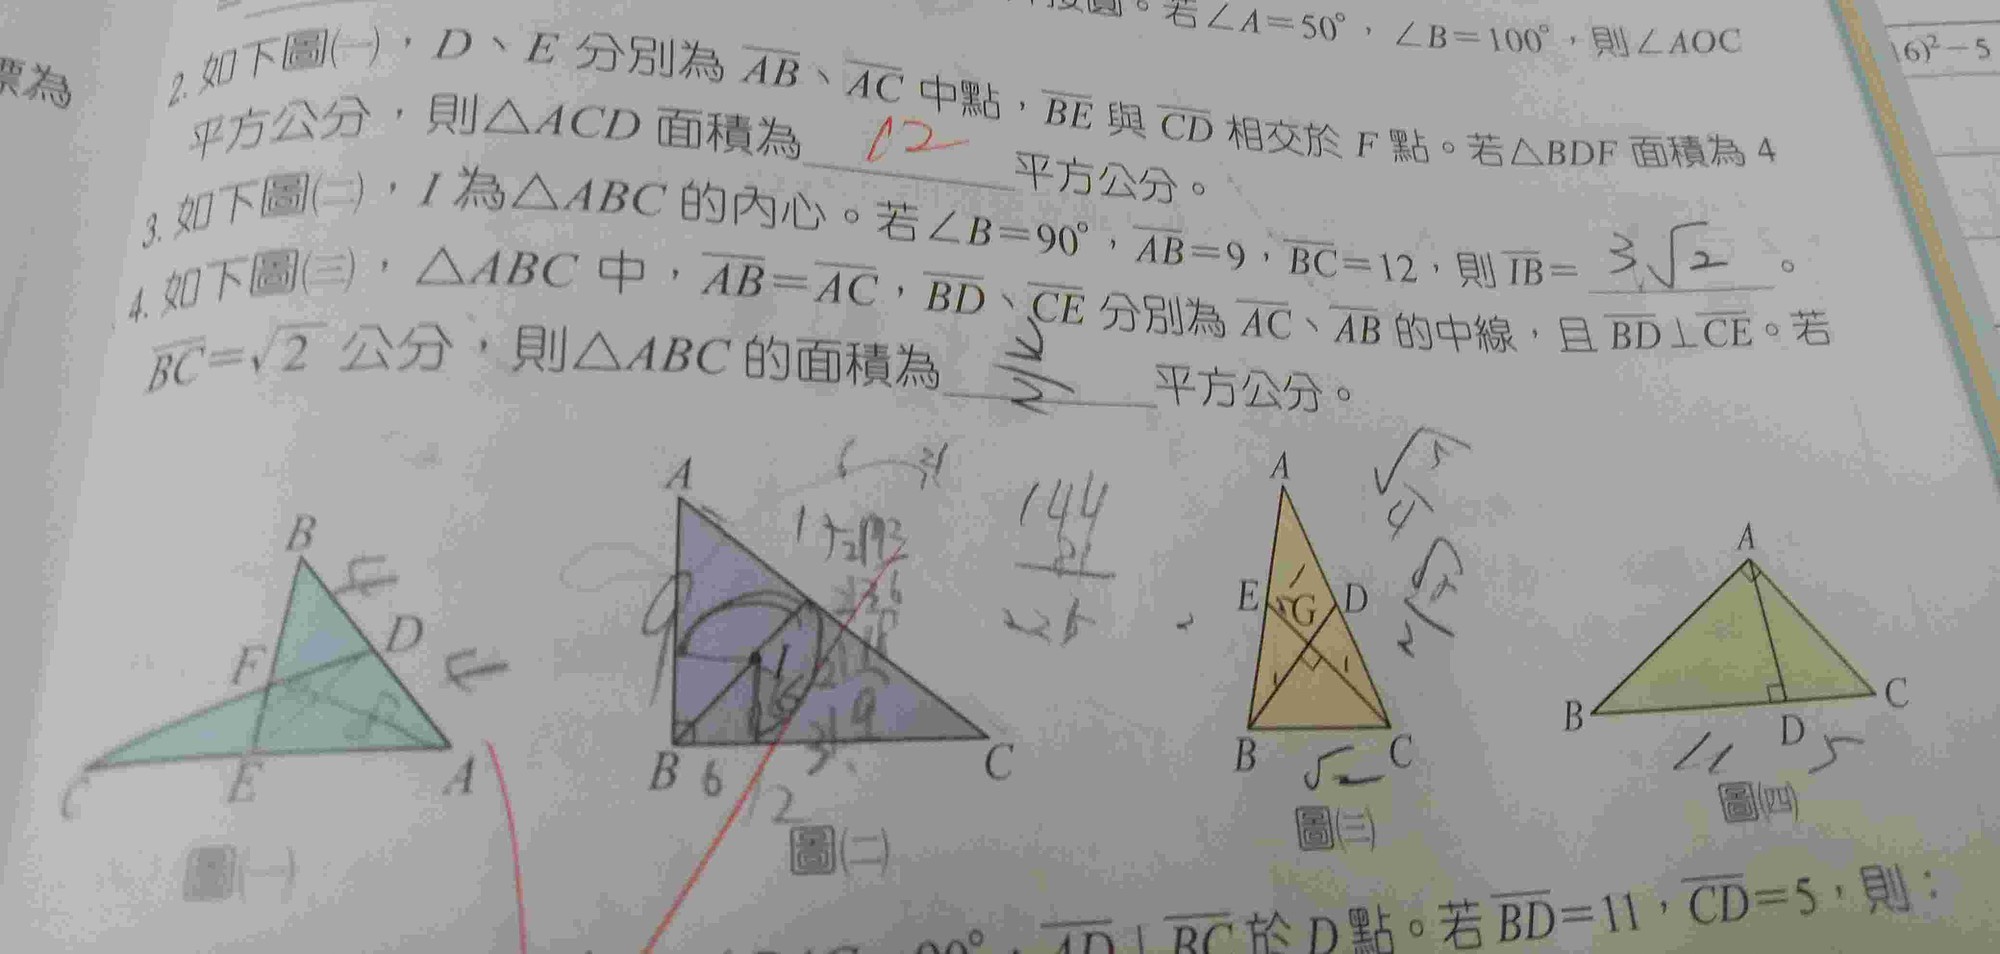 。若∠A=50°，∠B=100°，則∠AOC
6)²-5
標為
2. 如下圖(一)，D、E 分別為 AB、AC 中點，BE 與 CD 相交於 F 點。若△BDF 面積為 4
平方公分，則△ACD 面積為 12 平方公分。
3. 如下圖(二)，I 為△ABC 的內心。若∠B=90°，AB=9，BC=12，則 IB= 3√2 。
4. 如下圖(三)，△ABC 中，AB=AC，BD、CE 分別為 AC、AB 的中線，且 BD⊥CE。若
BC=√2 公分，則△ABC 的面積為 平方公分。
B
D
F
E
A
C
圖(一)
A
9
I
B
6
12
C
圖(二)
144
A
E
G
D
B
√2
C
圖(三)
A
B
11
D
5
C
圖(四)
90°，AD⊥BC 於 D 點。若 BD=11，CD=5，則：